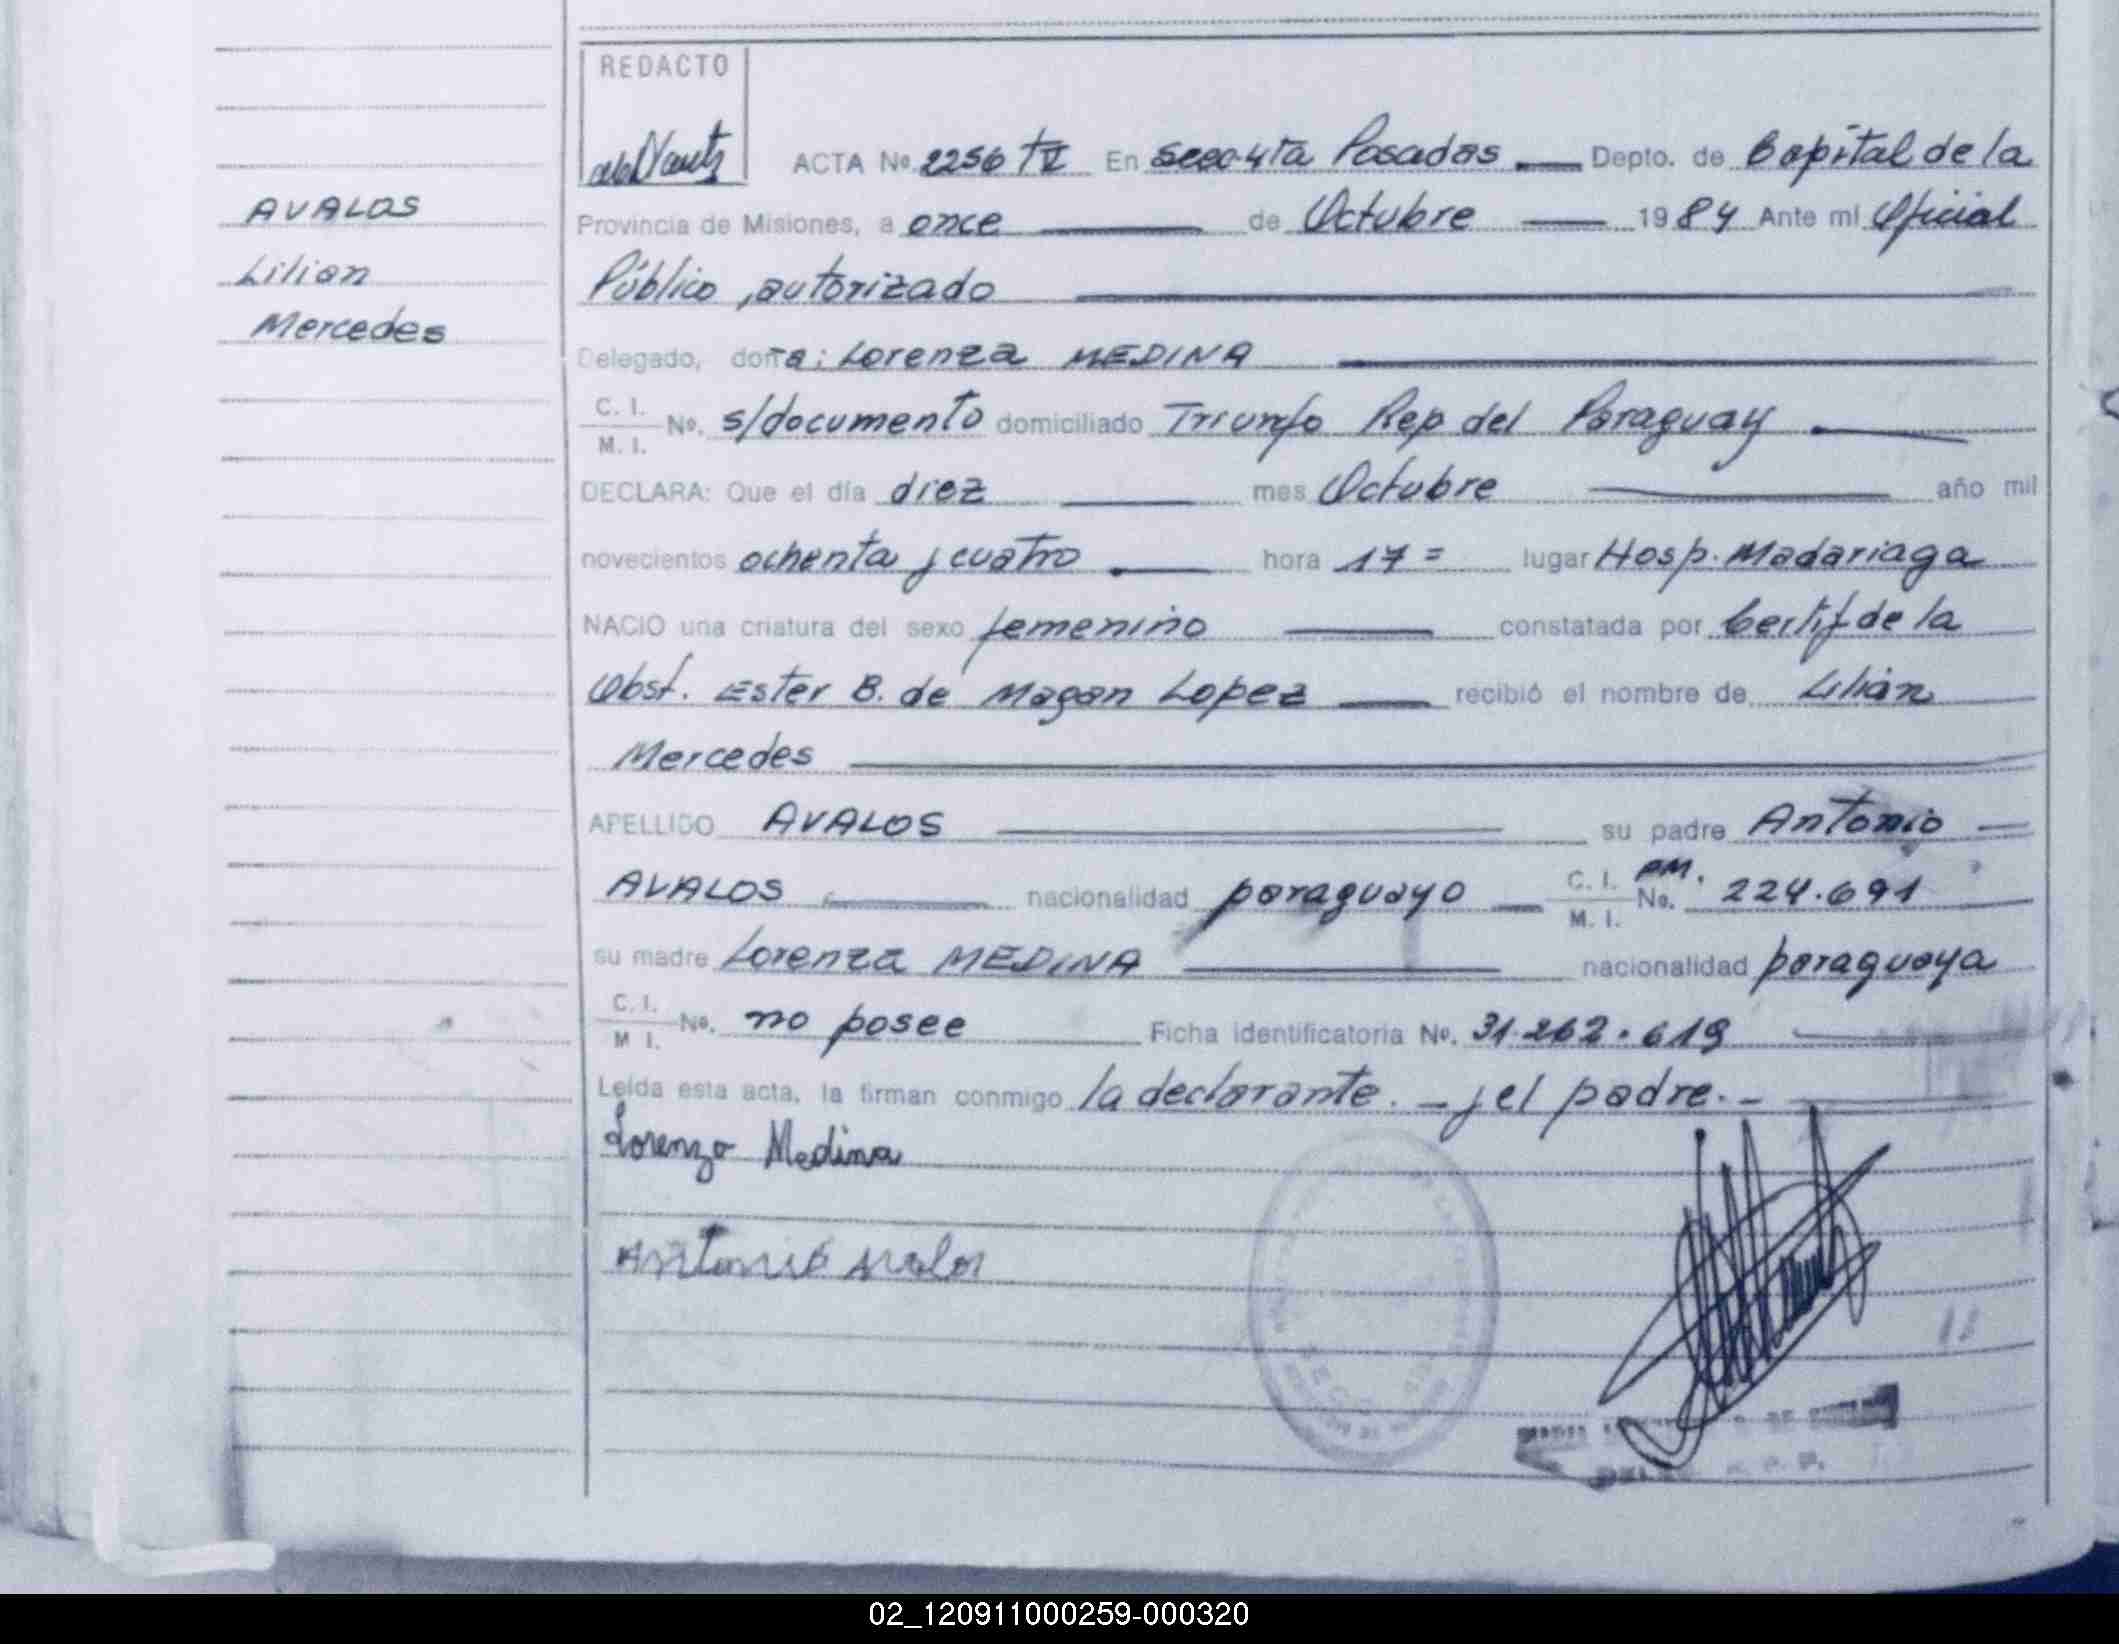 REDACTO
ACTA No. 2256 TV En secc. 4ta Posadas Depto. de Capital de la
AVALOS
Provincia de Misiones, a once de Octubre 1984 Ante mi Oficial
Lilian
Público, autorizado
Mercedes
Delegado, doña: Lorenza MEDINA
C. I.
M. I. No. s/documento domiciliado Triunfo Rep del Paraguay
DECLARA: Que el día diez mes Octubre año mil
novecientos ochenta y cuatro hora 17= lugar Hosp. Madariaga
NACIO una criatura del sexo femenino constatada por Certif de la
Obst. Ester B. de Magan Lopez recibió el nombre de Lilian
Mercedes
APELLIDO AVALOS su padre Antonio
AVALOS nacionalidad paraguayo C. I. M. I. No. PM. 224.691
su madre Lorenza MEDINA nacionalidad paraguaya
C. I.
M I. No. no posee Ficha identificatoria No. 31.262.619
Leída esta acta, la firman conmigo la declarante. - y el padre. -
Lorenzo Medina
Antonio Avalos
02_120911000259-000320